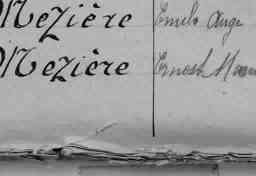 Mezière Emile Ange
Mezière Ernest